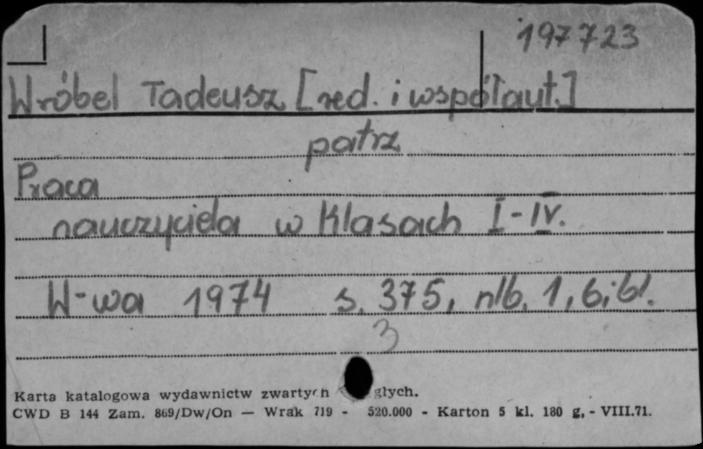 197723
Wróbel Tadeusz [red. i współaut.]
patrz
Praca
nauczyciela w klasach I-IV.
W-wa 1974 s. 375, nlb. 1, bibl.
3
Karta katalogowa wydawnictw zwartych głych.
CWD B 144 Zam. 869/Dw/On — Wrak 719 - 520.000 - Karton 5 kl. 180 g, - VIII.71.